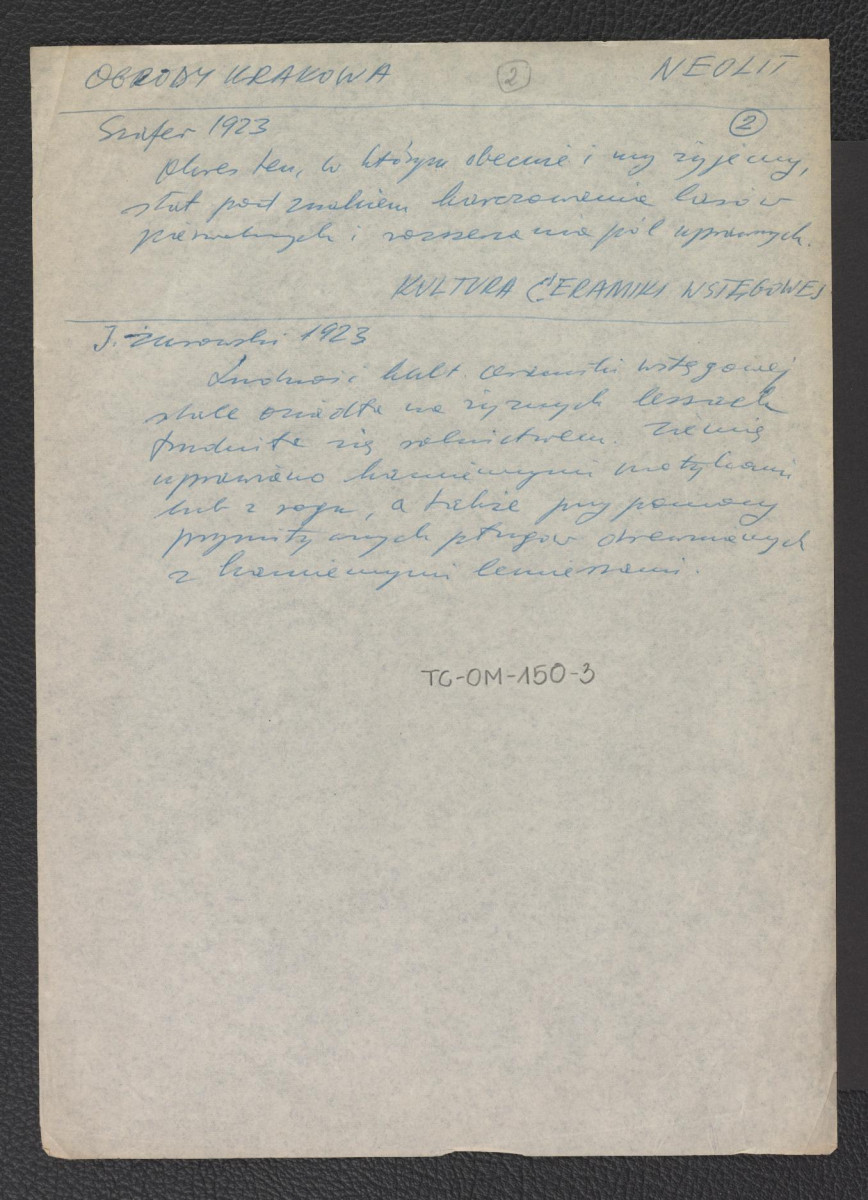 OGRODY KRAKOWA 2 NEOLIT
Szafer 1923 2
Okres ten, w którym obecnie i my żyjemy,
stał pod znakiem karczowania lasów
pierwotnych i rozszerzania pól uprawnych.
KULTURA CERAMIKI WSTĘGOWEJ
J. Żurowski 1923
Ludność kult. ceramiki wstęgowej
stale osiadła na żyznych lessach
trudniła się rolnictwem. Ziemię
uprawiano kamiennymi motykami
lub z rogu, a także przy pomocy
prymitywnych pługów drewnianych
z kamiennymi lemieszami.
TC-OM-150-3